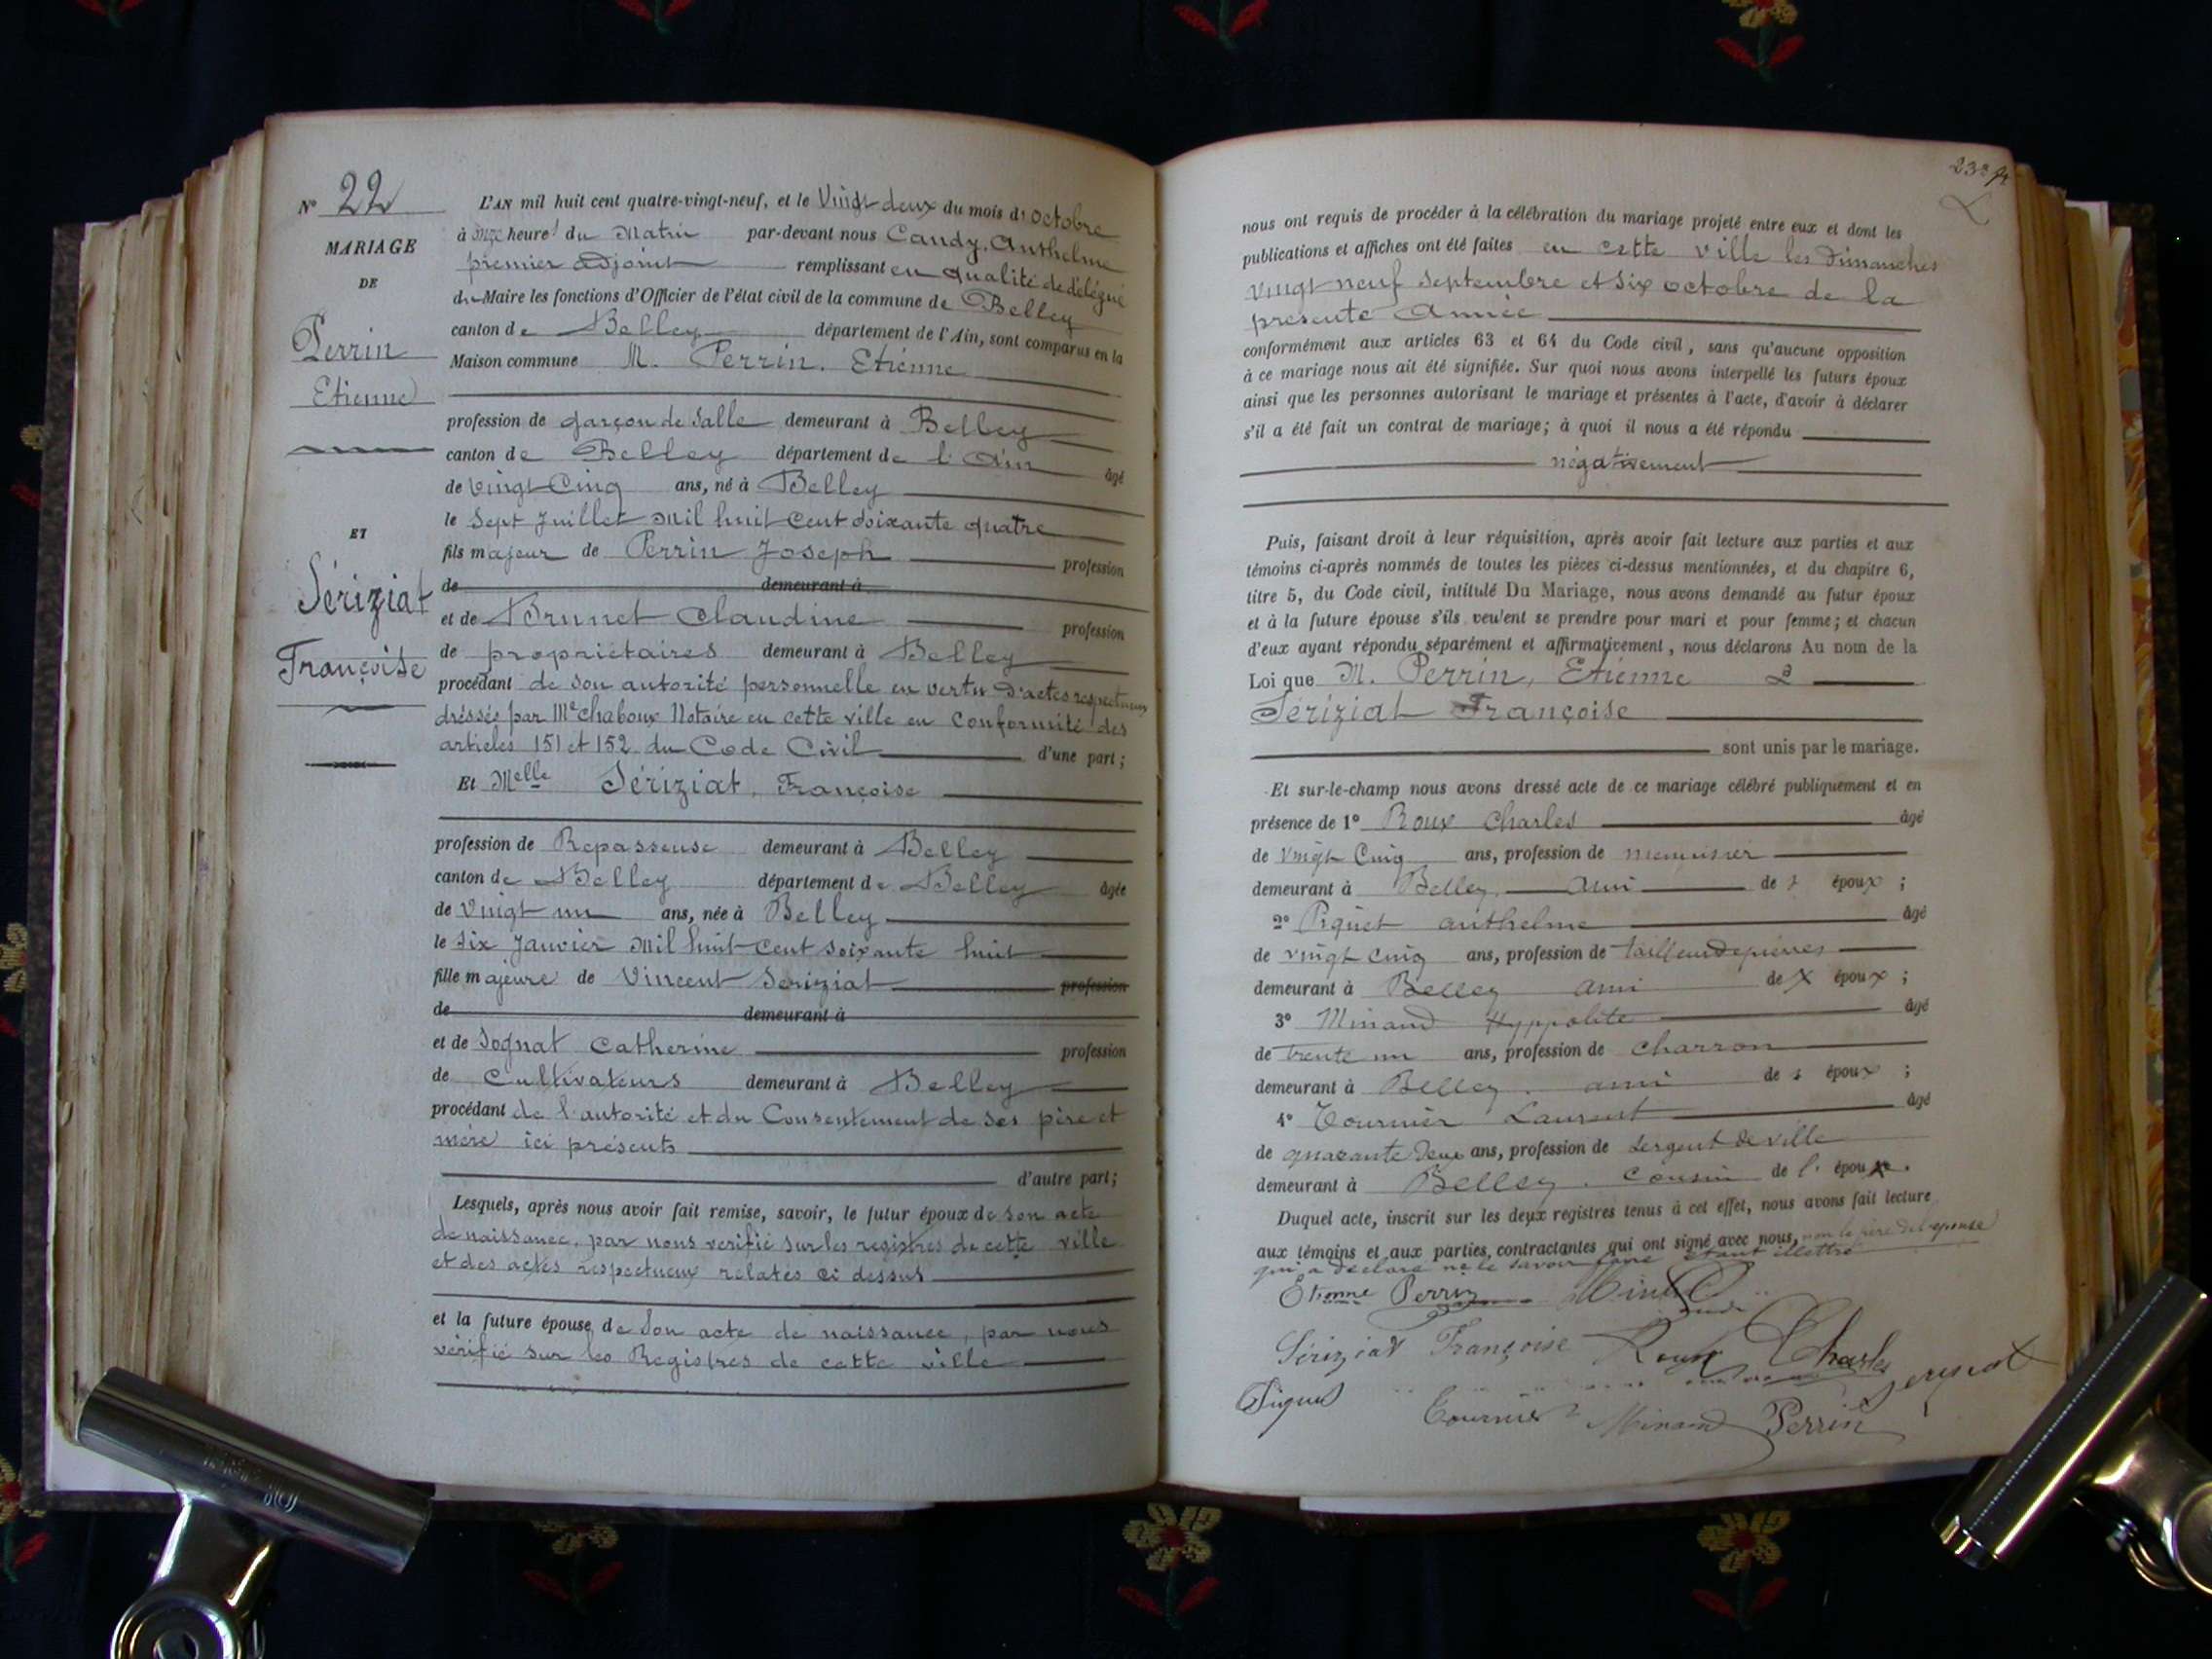 N° 22
MARIAGE
DE
Perrin
Etienne
ET
Sériziat
Françoise
L'AN mil huit cent quatre-vingt-neuf, et le Vingt deux du mois d'octobre
à onze heures du Matin par-devant nous Candy, Anthelme
premier adjoint remplissant en qualité de délégué
du Maire les fonctions d'Officier de l'état civil de la commune de Belley
canton de Belley département de l'Ain, sont comparus en la
Maison commune M. Perrin, Etienne
profession de garçon de salle demeurant à Belley
canton de Belley département de l'Ain âgé
de vingt Cinq ans, né à Belley
le Sept Juillet mil huit Cent soixante quatre
fils majeur de Perrin Joseph profession
de demeurant à
et de Brunet Claudine profession
de propriétaires demeurant à Belley
procédant de son autorité personnelle en vertu d'actes respectueux
dressés par Me Chaboux Notaire en cette ville en conformité des
articles 151 et 152 du Code Civil d'une part;
Et Melle Sériziat, Françoise
profession de Repasseuse demeurant à Belley
canton de Belley département de Belley âgée
de Vingt un ans, née à Belley
le six Janvier mil huit cent soixante huit
fille majeure de Vincent Seriziat profession
de demeurant à
et de Sognat Catherine profession
de Cultivateurs demeurant à Belley
procédant de l'autorité et du Consentement de ses père et
mère ici présents
d'autre part;
Lesquels, après nous avoir fait remise, savoir, le futur époux de son acte
de naissance, par nous verifié sur les registres de cette ville
et des actes respectueux relatés ci dessus
et la future épouse de son acte de naissance, par nous
vérifié sur les Registres de cette ville
nous ont requis de procéder à la célébration du mariage projeté entre eux et dont les
publications et affiches ont été faites en cette ville les dimanches
vingt neuf septembre et six octobre de la
presente Année
conformément aux articles 63 et 64 du Code civil, sans qu'aucune opposition
à ce mariage nous ait été signifiée. Sur quoi nous avons interpellé les futurs époux
ainsi que les personnes autorisant le mariage et présentes à l'acte, d'avoir à déclarer
s'il a été fait un contrat de mariage; à quoi il nous a été répondu
négativement
Puis, faisant droit à leur réquisition, après avoir fait lecture aux parties et aux
témoins ci-après nommés de toutes les pièces ci-dessus mentionnées, et du chapitre 6,
titre 5, du Code civil, intitulé Du Mariage, nous avons demandé au futur époux
et à la future épouse s'ils veulent se prendre pour mari et pour femme; et chacun
d'eux ayant répondu séparément et affirmativement, nous déclarons Au nom de la
Loi que M. Perrin, Etienne &
Sériziat Françoise
sont unis par le mariage.
Et sur-le-champ nous avons dressé acte de ce mariage célébré publiquement et en
présence de 1° Roux Charles âgé
de vingt Cinq ans, profession de menuisier
demeurant à Belley ami des époux;
2° Piquet anthelme âgé
de vingt cinq ans, profession de tailleur de pierres
demeurant à Belley ami de époux;
3° Minand Hyppolite âgé
de trente un ans, profession de charron
demeurant à Belley, ami des époux;
4° Tournier Laurent âgé
de quarante deux ans, profession de sergent de ville
demeurant à Belley, cousin de l'époux.
Duquel acte, inscrit sur les deux registres tenus à cet effet, nous avons fait lecture
aux témoins et aux parties contractantes qui ont signé avec nous, non le père de l'épouse
qui a déclaré ne le savoir faire étant illettré
Etienne Perrin
Sériziat Françoise Roux Charles
Tournier Minand Perrin